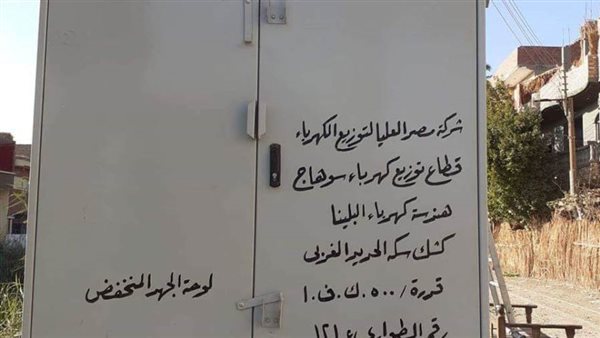 شركة مصر العليا لتوزيع الكهرباء
قطاع توزيع كهرباء سوهاج
هندسة كهرباء البلينا
كشك سكة الحديد الغربى
قدرة / ٥٠٠ ك . ف . ا
رقم الطوارئ ١٢١
لوحة الجهد المنخفض